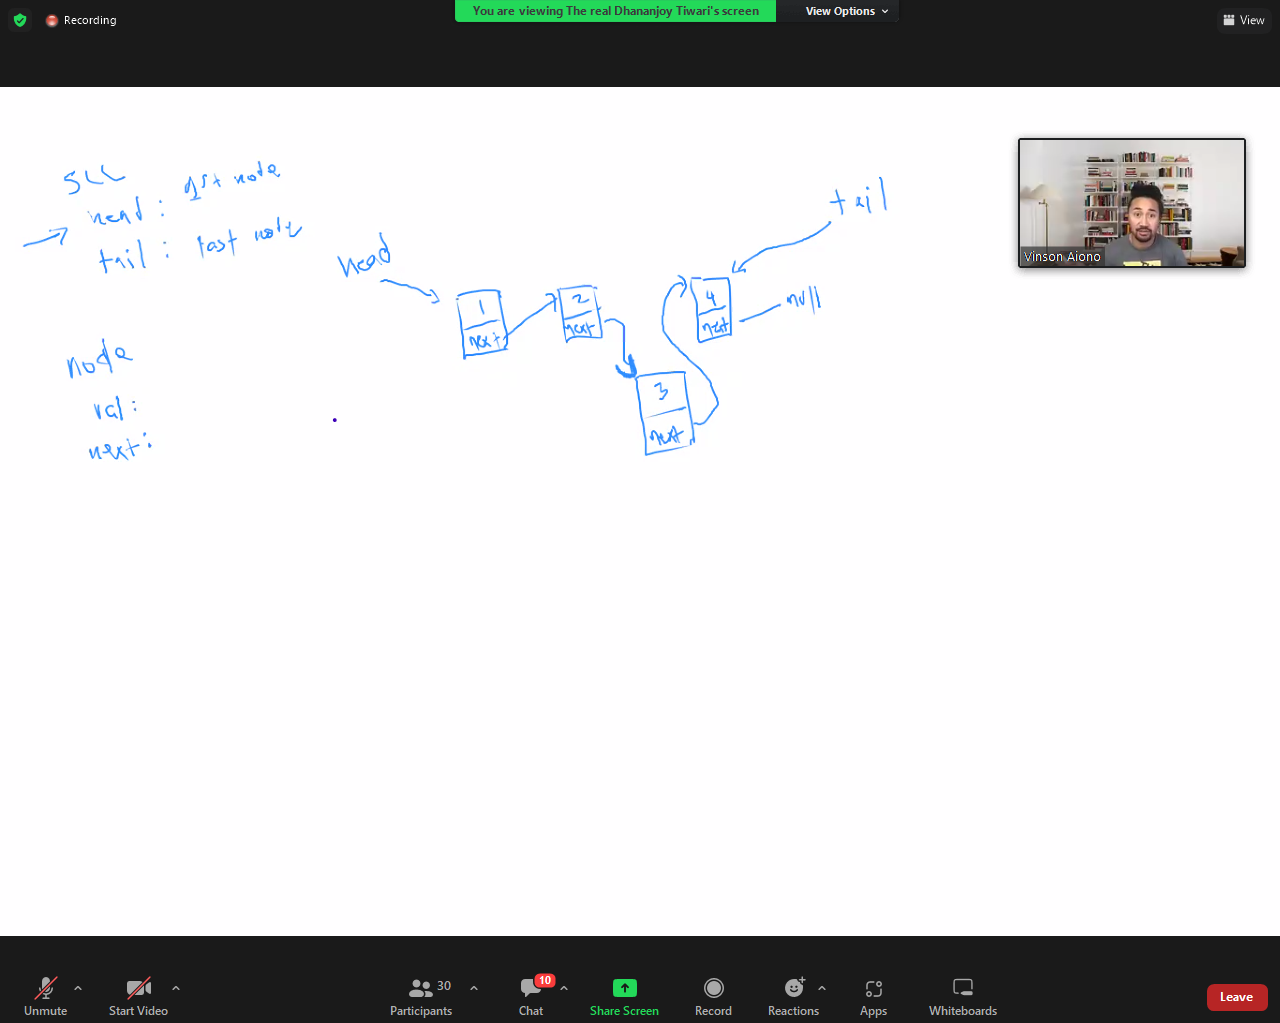 Recording
You are viewing The real Dhananjoy Tiwari's screen
View Options
View
SLL
head : 1st node
tail : last node
head
tail
1
next
2
next
3
next
4
next
null
node
val :
next :
Vinson Aiono
Unmute
Start Video
30
Participants
10
Chat
Share Screen
Record
Reactions
Apps
Whiteboards
Leave